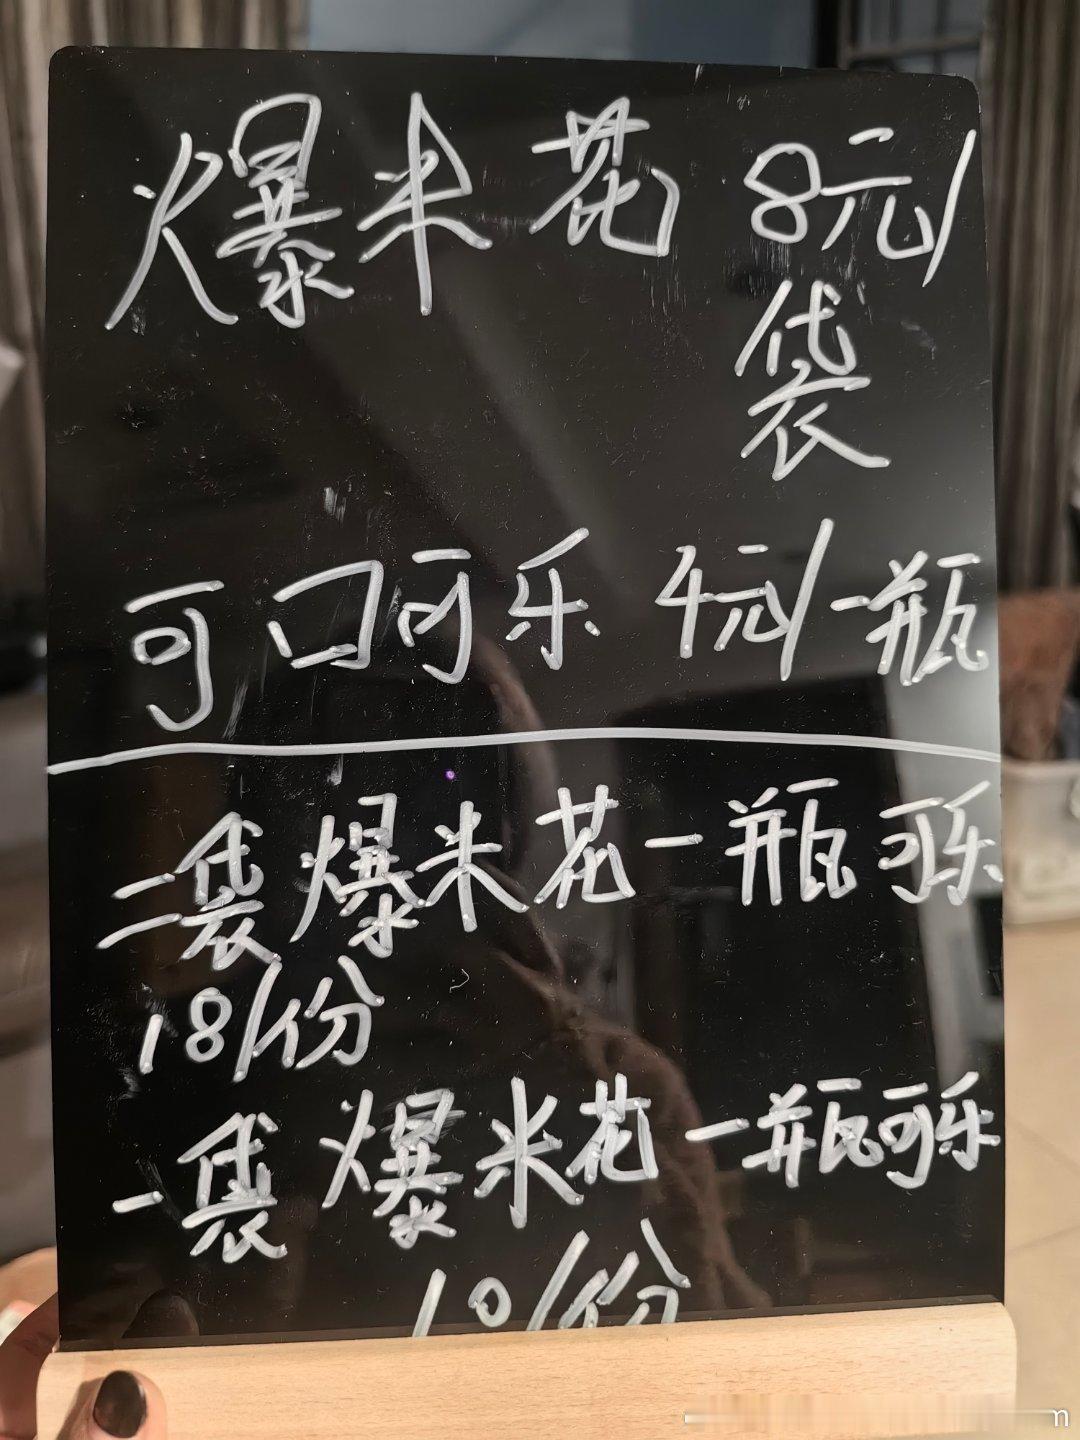 爆米花 8元/
袋
可口可乐 4元/一瓶
二袋爆米花一瓶可乐
18/份
一袋爆米花一瓶可乐
10/份